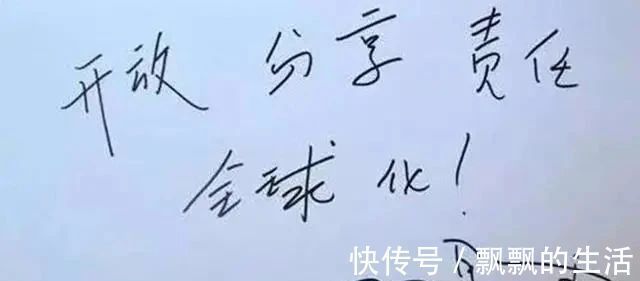 开放 分享 责任
全球化！
快传号 / 飘飘的生活